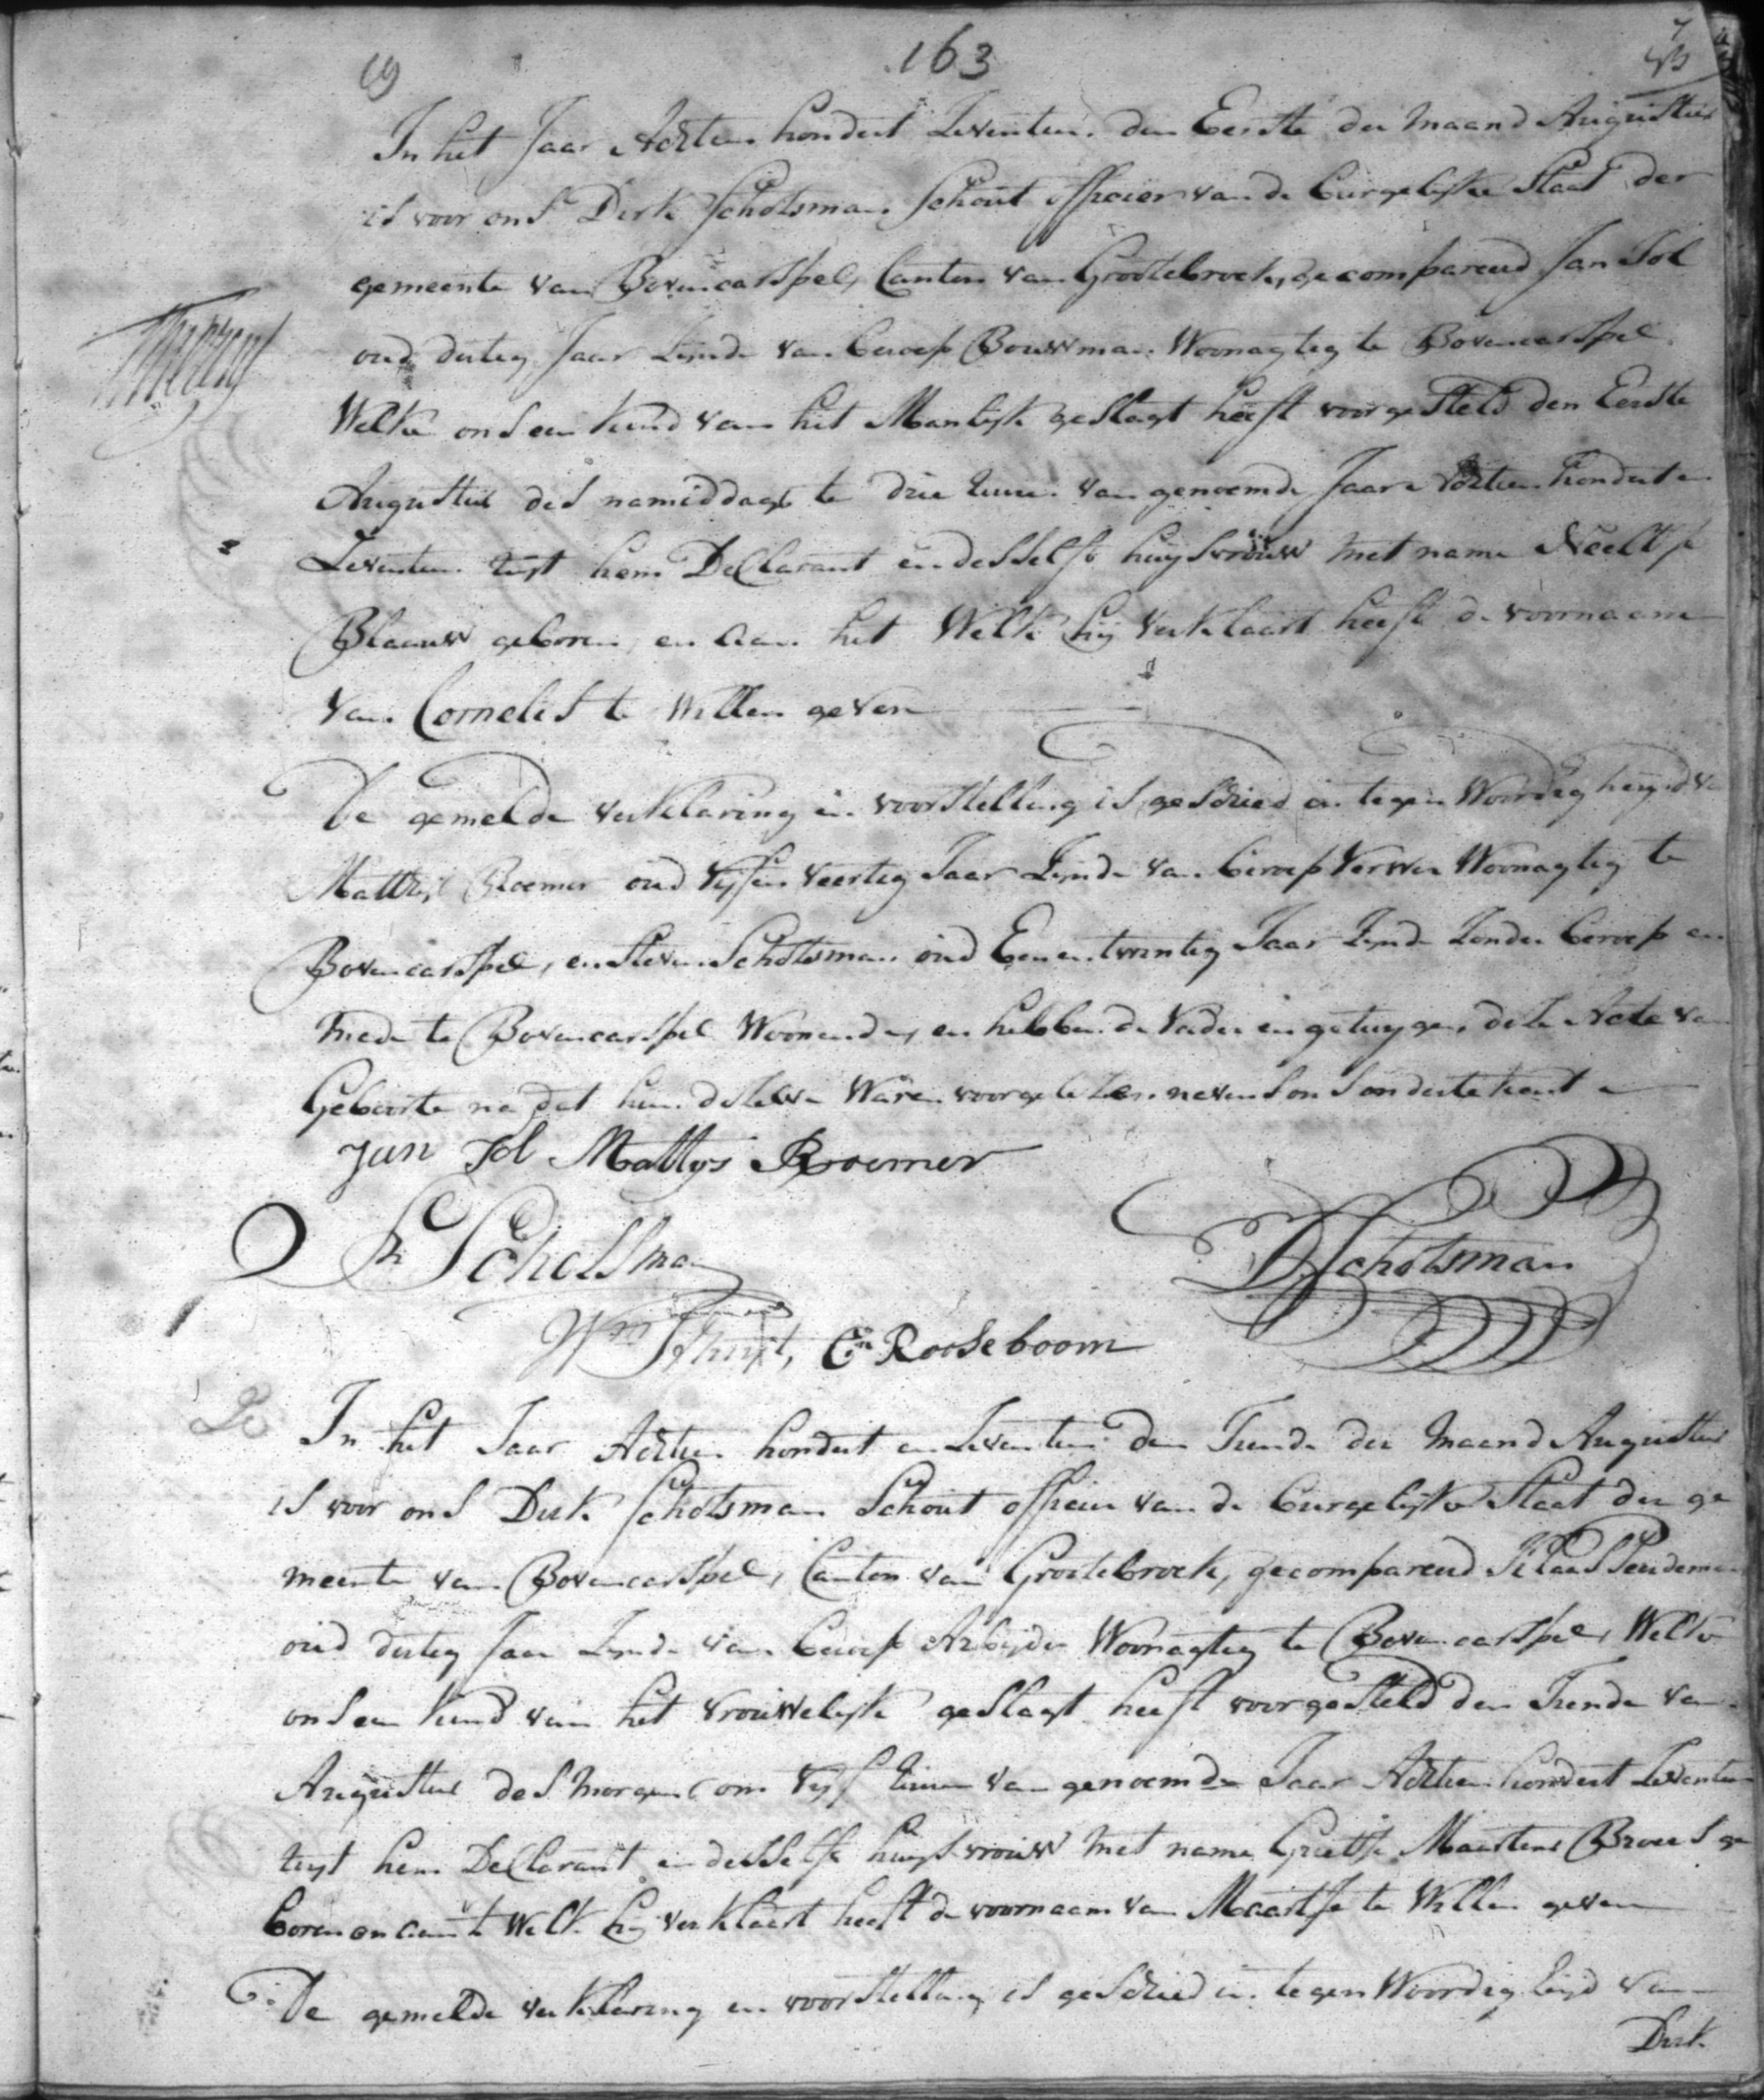 163
19
In het Jaar Achtien hondert Zeventien den Eerste der Maand Augustus
is voor ons Dirk Schotsman Schout officier van de Burgelijke Staat der
gemeente van Bovencarspel, Canton van Grootebroek, gecompareerd Jan Sol
oud dertig Jaar Zynde van beroep Bouwman Woonagtig te Bovencarspel
Welke ons een kind van het Manlijk geslagt heeft voorgesteld den Eerste
Augustus des namiddags te drie uuren van genoemde Jaare Achtien hondert en
Zeventien uyt hem Declarant en desselfs huysvrouw met name Neeltje
Blaauw geboren, en aan het Welke hij verklaart heeft de voornaam
van Cornelis te Willen geven
De gemelde verklaring en voorstelling is geschied in tegenwoordigheyd va
Mattijs Roemer oud Vijf en Veertig Jaar Zynde van beroep Verwer Woonagtig te
Bovencarspel, en Steven Schotsman oud Een en twintig Jaar Zynde Zonder beroep en
mede te Bovencarspel Woonende, en hebben de Vader en getuygen deze Acte van
Geboorte na dat hun deselve Waren voorgelezen nevens ons ondertekent
Jan Sol Mattys Roemer
Sn Schotsman
DSchotsman
Wm , Cn Rooseboom
20
In het Jaar Achtien hondert en Zeventien den Tiende der Maand Augustus
is voor ons Dirk Schotsman Schout officier van de Burgelijke Staat der ge
meente van Bovencarspel, Canton van Grootebroek, gecompareerd Klaas
oud dertig Jaar Zynde van beroep Arbeyder Woonagtig te Bovencarspel, Welke
ons een kind van het vrouwelijk geslagt heeft voorgesteld den Tiende van
Augustus des morgens om Vijf uuren van genoemde Jaar Achtien hondert Zeventien
uyt hem Declarant en desselfs huysvrouw met name Grietje Maartens Broers ge
boren en aan 't Welk hij verklaart heeft de voornaam van Maartje te Willen geven
De gemelde verklaring en voorstelling is geschied in tegenwoordigheyd van
Dirk